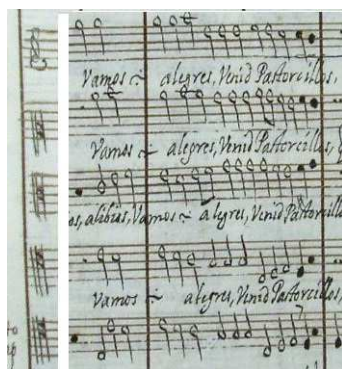 Vamos ÷ alegres, Venid Pastorcillos,
Vamos ÷ alegres, Venid Pastorcillos,
os, alibias, Vamos ÷ alegres, Venid Pastorcillo
Vamos ÷ alegres, Venid Pastorcillos,